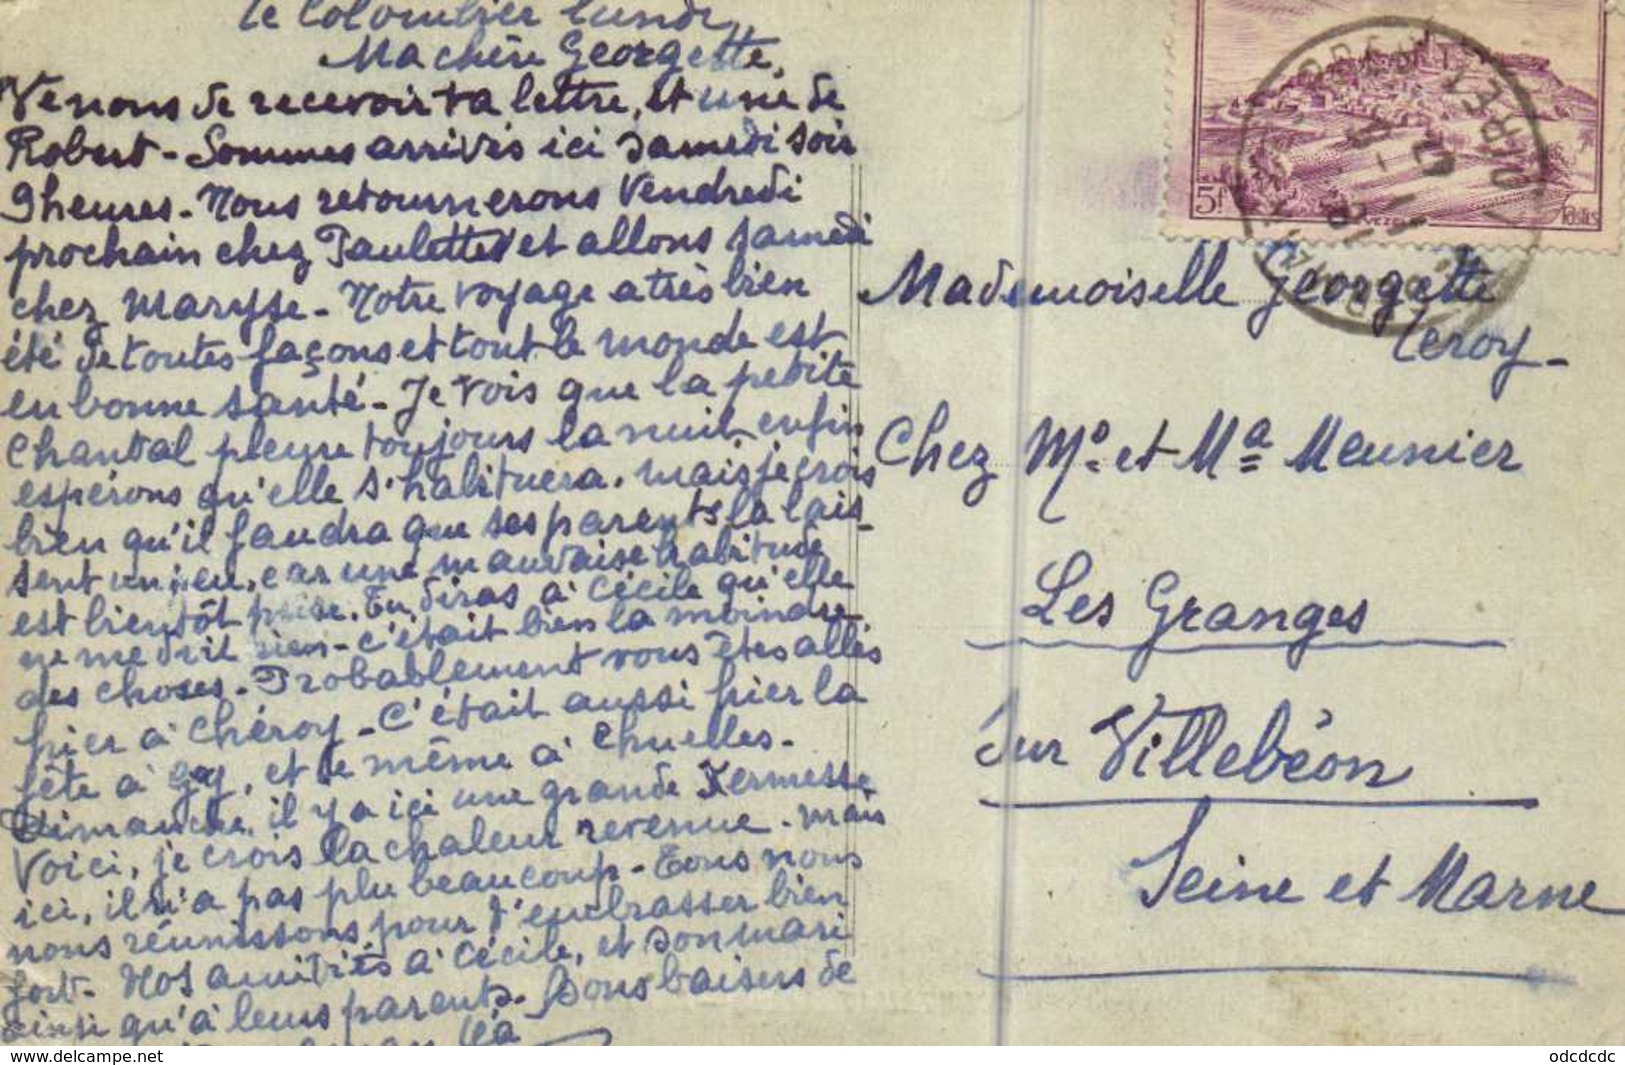 Le Colombier lundi
Ma chère Georgette,
Venons de recevoir ta lettre, et une de
Robert - Sommes arrivés ici samedi soir
9 heures - Nous retournerons Vendredi
prochain chez Paulette et allons samedi
chez Maryse - Notre voyage a très bien
été de toutes façons et tout le monde est
en bonne santé - Je vois que la petite
Chantal pleure toujours la nuit, enfin
espérons qu'elle s'habituera, mais je crois
bien qu'il faudra que ses parents la lais-
sent un peu, car une mauvaise habitude
est bientôt prise. Tu diras à Cécile qu'elle
ne me doit rien - c'était bien la moindre
des choses - Probablement vous êtes allés
hier à Chéroy - C'était aussi hier la
fête à Gy, et de même à Chuelles -
Dimanche, il y a ici une grande Kermesse
Voici, je crois la chaleur revenue - mais
ici, il n'a pas plu beaucoup - Tous nous
nous réunissons pour t'embrasser bien
fort - Nos amitiés à Cécile, et son mari
ainsi qu'à leurs parents. Bons baisers de
Léa
5f
VEZELAY
Postes
Mademoiselle Georgette
Leroy -
Chez Mr. et Ma Meunier
Les Granges
Sur Villebéon
Seine et Marne
http://www.delcampe.net
odcdcdc